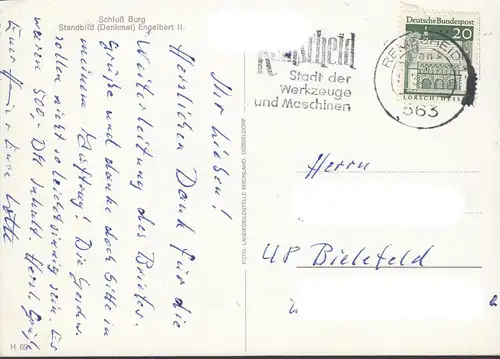 Schloß Burg
Standbild (Denkmal) Engelbert II.
Ihr Lieben!
Herzlichen Dank für die
Weiterleitung des Briefes.
Grüße und danke doch bitte in
meinem Auftrag! Die Geschw.
sollen nicht so leichtsinnig sein. Es
waren 500,- DM Inhalt. Herzl. Grüße
Eure Lotte
H 69
FOTO: LANDESBILDSTELLE RHEINLAND, DÜSSELDORF
Remscheid
Stadt der
Werkzeuge
und Maschinen
REMSCHEID
563
Deutsche Bundespost
20
LORSCH/HESS
Herrn
48 Bielefeld